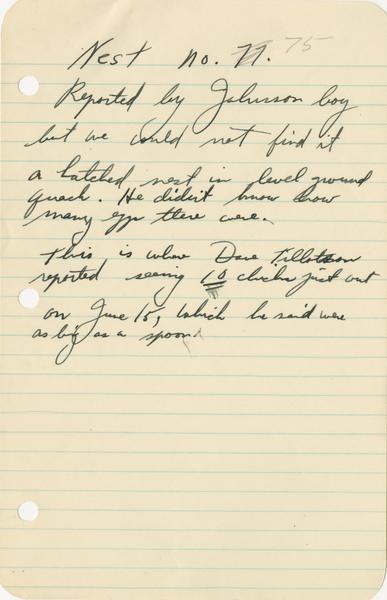 Nest no. 77. 75
Reported by Johnson boy
but we could not find it
a hatched nest in level ground
quack. He didn't know how
many eggs there were.
This is where Dave Tillotson
reported seeing 10 chicks just out
on June 15, which he said were
as big as a spoon